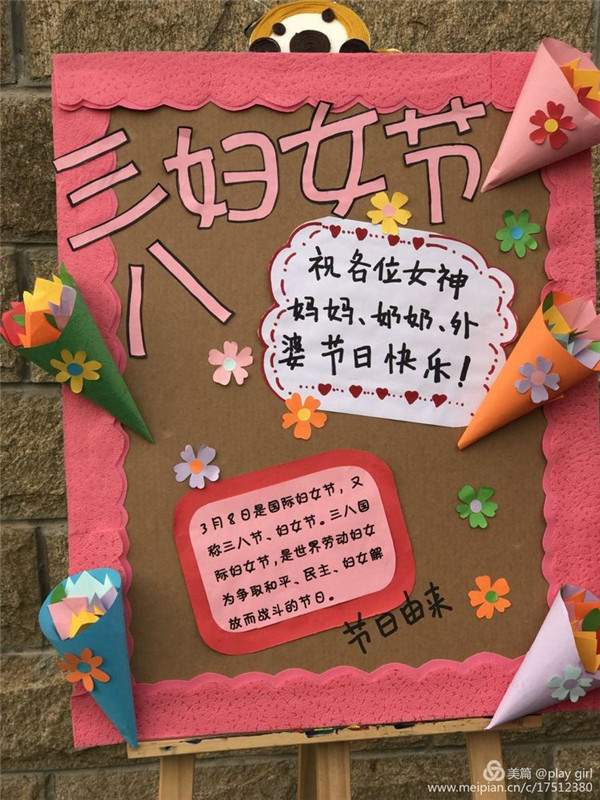 三妇女节
八
祝各位女神
妈妈、奶奶、外
婆节日快乐!
3月8日是国际妇女节，又
称三八节、妇女节。三八国
际妇女节，是世界劳动妇女
为争取和平、民主、妇女解
放而战斗的节日。
节日由来
美篇 @play girl
www.meipian.cn/c/17512380